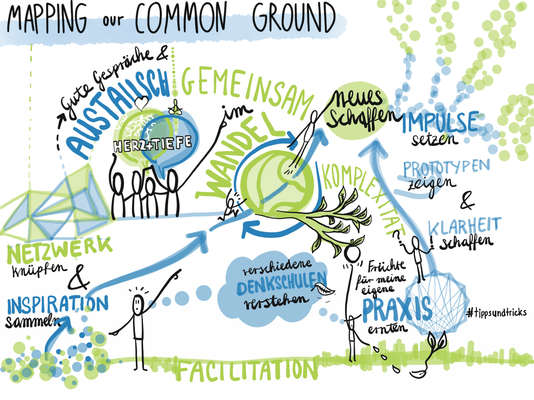 MAPPING our COMMON GROUND
Gute Gespräche &
AUSTAUSCH
HERZ+TIEFE
GEMEINSAM
im
WANDEL
neues
Schaffen
IMPULSE
setzen
PROTOTYPEN
zeigen
&
KLARHEIT
schaffen
KOMPLEXITÄT
?
!
NETZWERK
knüpfen
&
INSPIRATION
sammeln
verschiedene
DENKSCHULEN
verstehen
Früchte
für meine
eigene
PRAXIS
ernten
#tippsundtricks
#FACILITATION